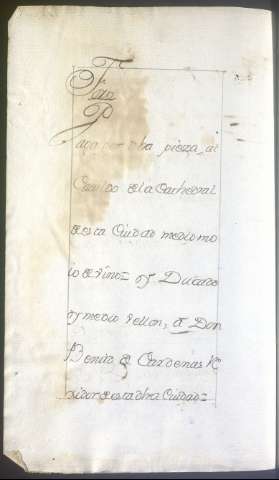 P
aga por dha pieza, al
Cavildo de la Cathedral
de esta Ciudad medio mo
io de vino= y Ducado
y medio vellon, Don
Benito de Cardenas
xidor de esta dha Ciudad=